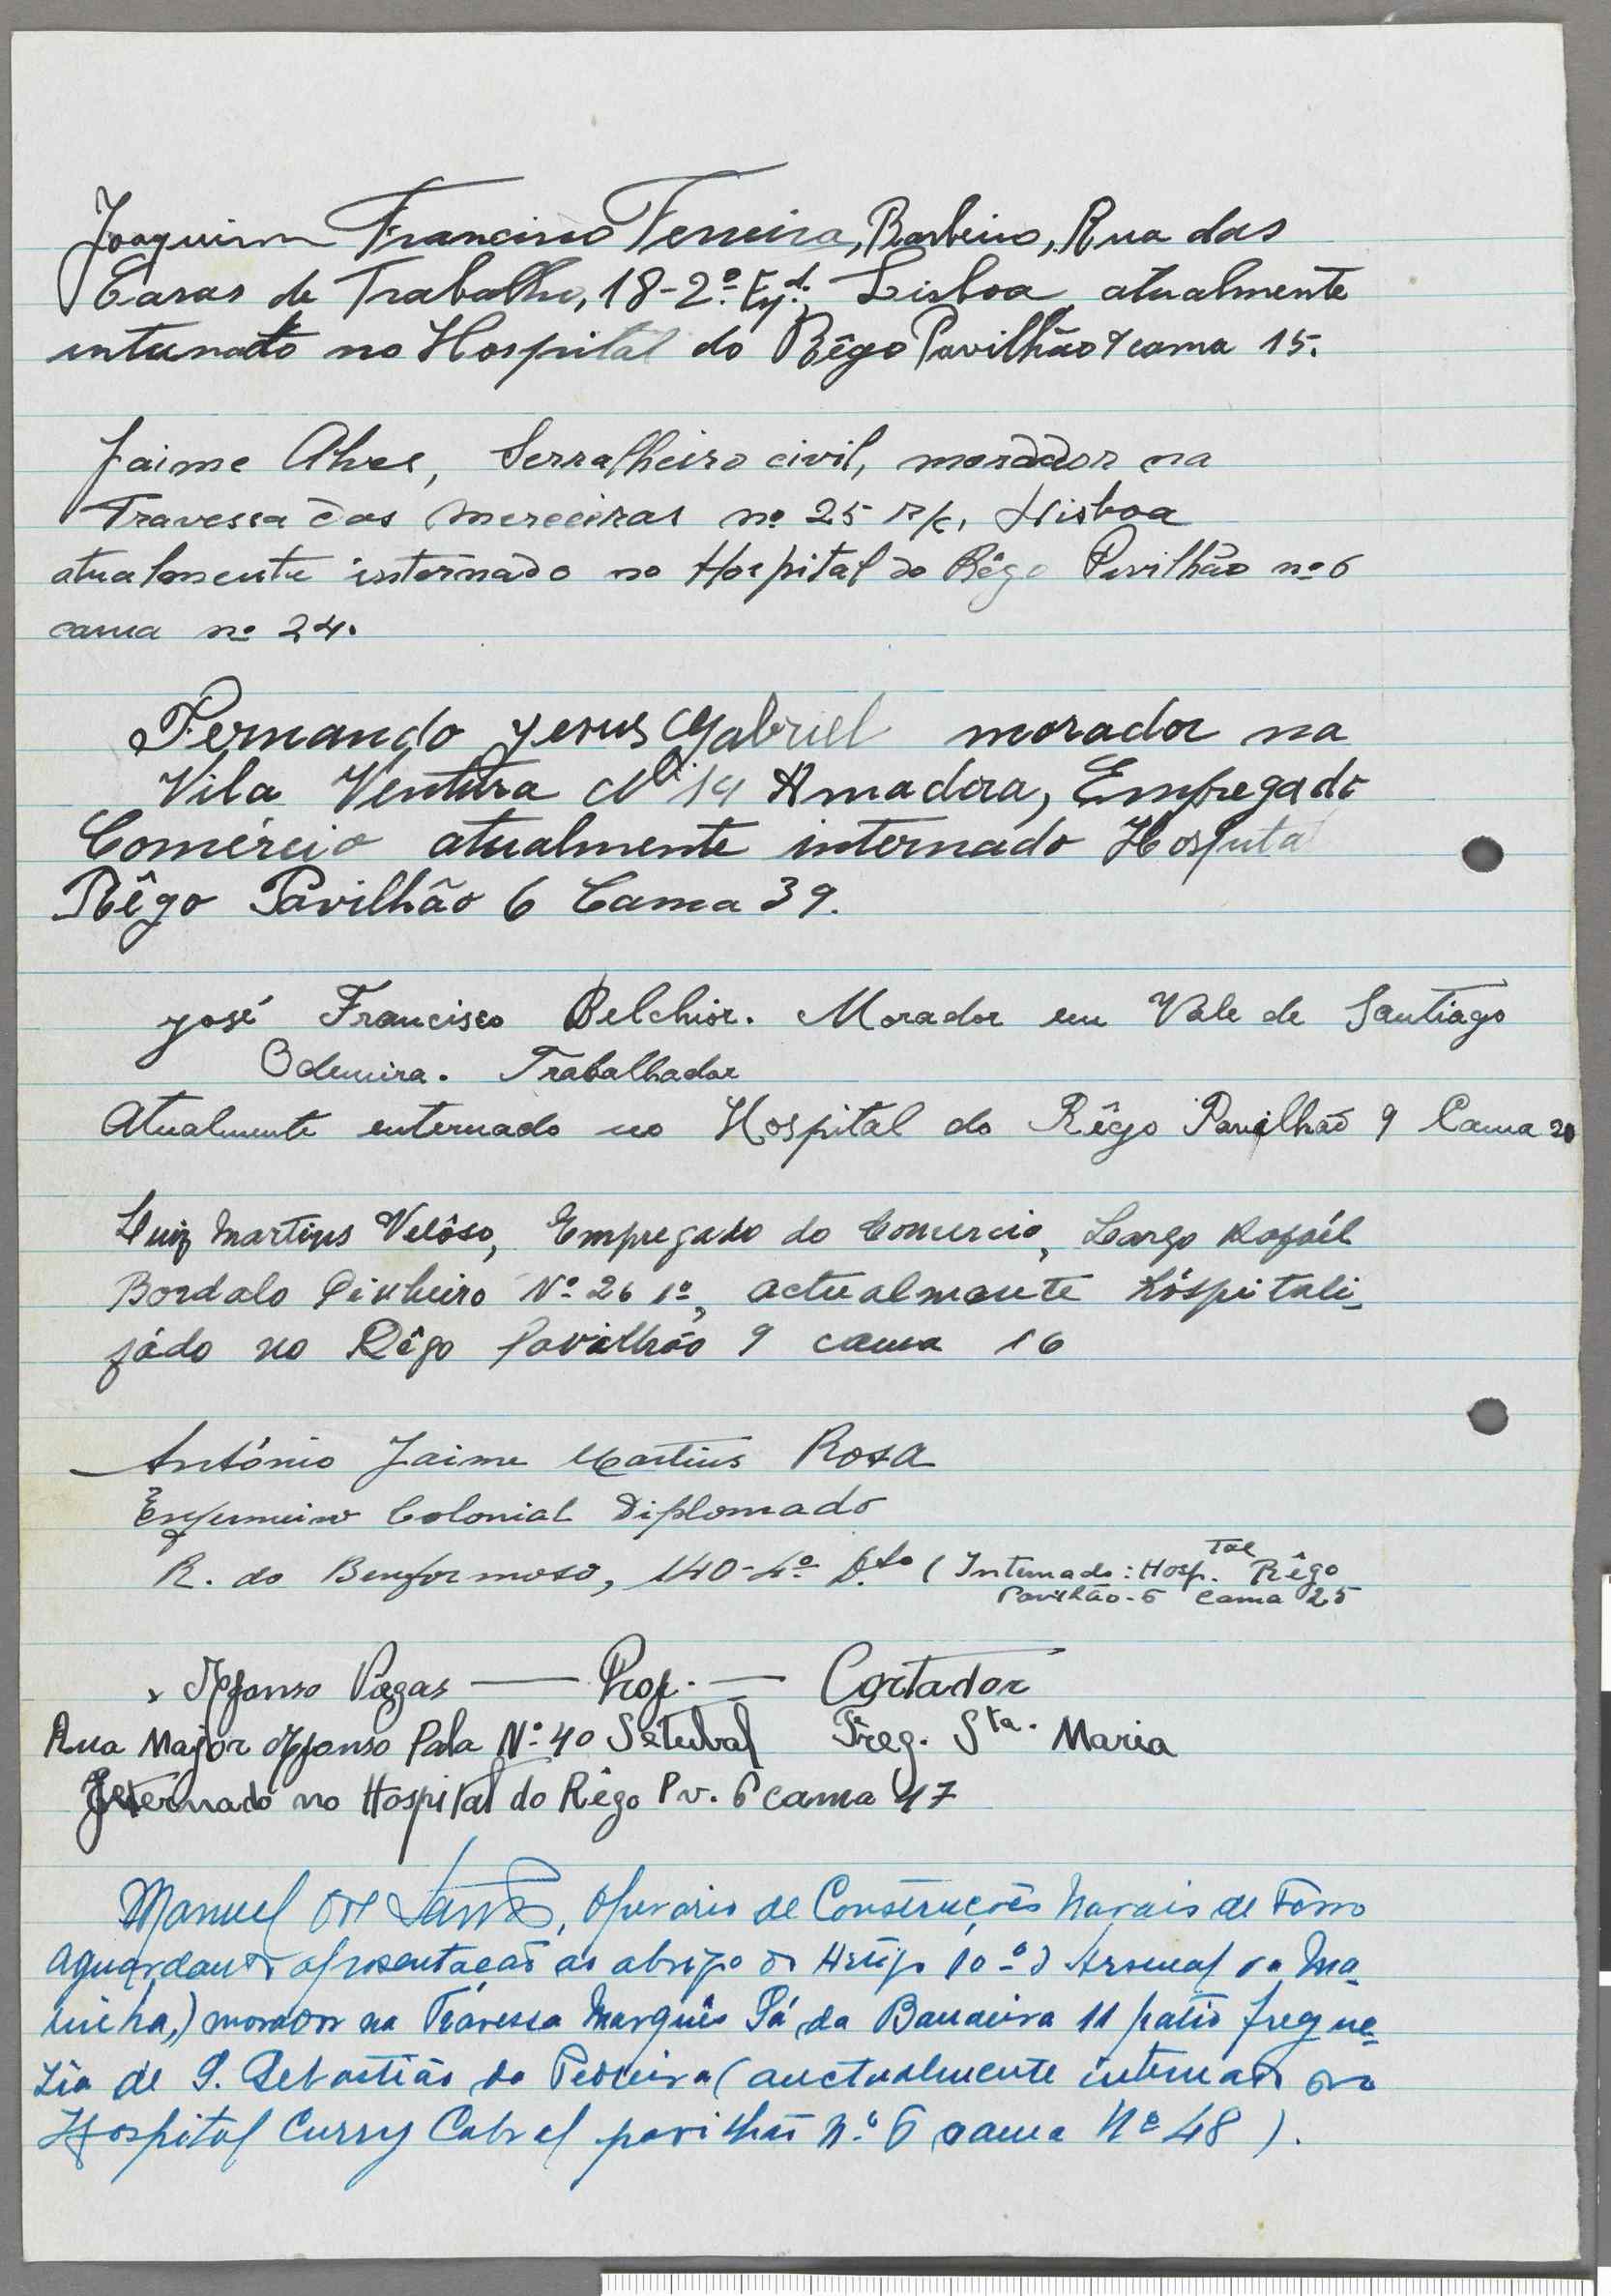 Joaquim Francisco Ferreira, Barbeiro, Rua das
Casas de Trabalho, 18-2º Esqd. Lisboa atualmente
internado no Hospital do Rêgo Pavilhão cama 15.
Jaime Alves, Serralheiro civil, morador na
Travessa das Merceeiras nº 25 r/c, Lisboa
atualmente internado no Hospital do Rêgo Pavilhão nº 6
cama nº 24.
Fernando Jesus Gabriel morador na
Vila Ventura Nº 14 Amadora, Empregado
Comércio atualmente internado Hospital
Rêgo Pavilhão 6 Cama 39.
José Francisco Belchior. Morador em Vale de Santiago
Odemira. Trabalhador
Atualmente enternado no Hospital do Rêgo Pavilhão 9 Cama 20
Luiz Martins Velôso, Empregado do Comercio, Largo Rafaél
Bordalo Pinheiro Nº 26 1º, actualmente hóspitali-
zádo no Rêgo Pavilhão 9 cama 16
António Jaime Martins Rosa
Enfermeiro Colonial Diplomado
R. do Benformoso, 140-4º D.to (Internado: Hosp.tal Rêgo
Pavilhão-6 Cama 25
Afonso Vagas — Prof. — Cortador
Rua Major Afonso Pala Nº 40 Setubal Freg. Sta. Maria
Internado no Hospital do Rêgo Pv. 6 cama 47
Manuel dos Santos, Operario de Construções Navais de Ferro
aguardando apresentação ao abrigo do Artigo 10º do Arsenal da Ma-
rinha,) morador na Travessa Marquês Sá da Bandeira 11 patio fregue-
zia de S. Sebastião da Pedreira (auctualmente internado no
Hospital Curry Cabral pavilhão nº 6 cama Nº 48).